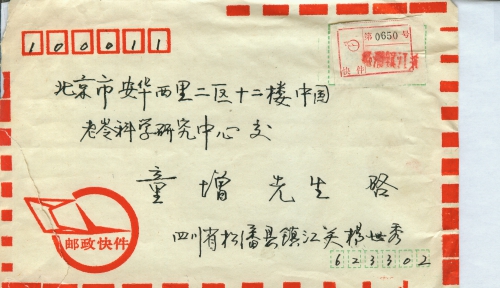 100011
第 0650 号
北京市安华西里二区十二楼中国
老龄科学研究中心交
童增先生启
四川省松潘县镇江关杨世秀
邮政快件
623302